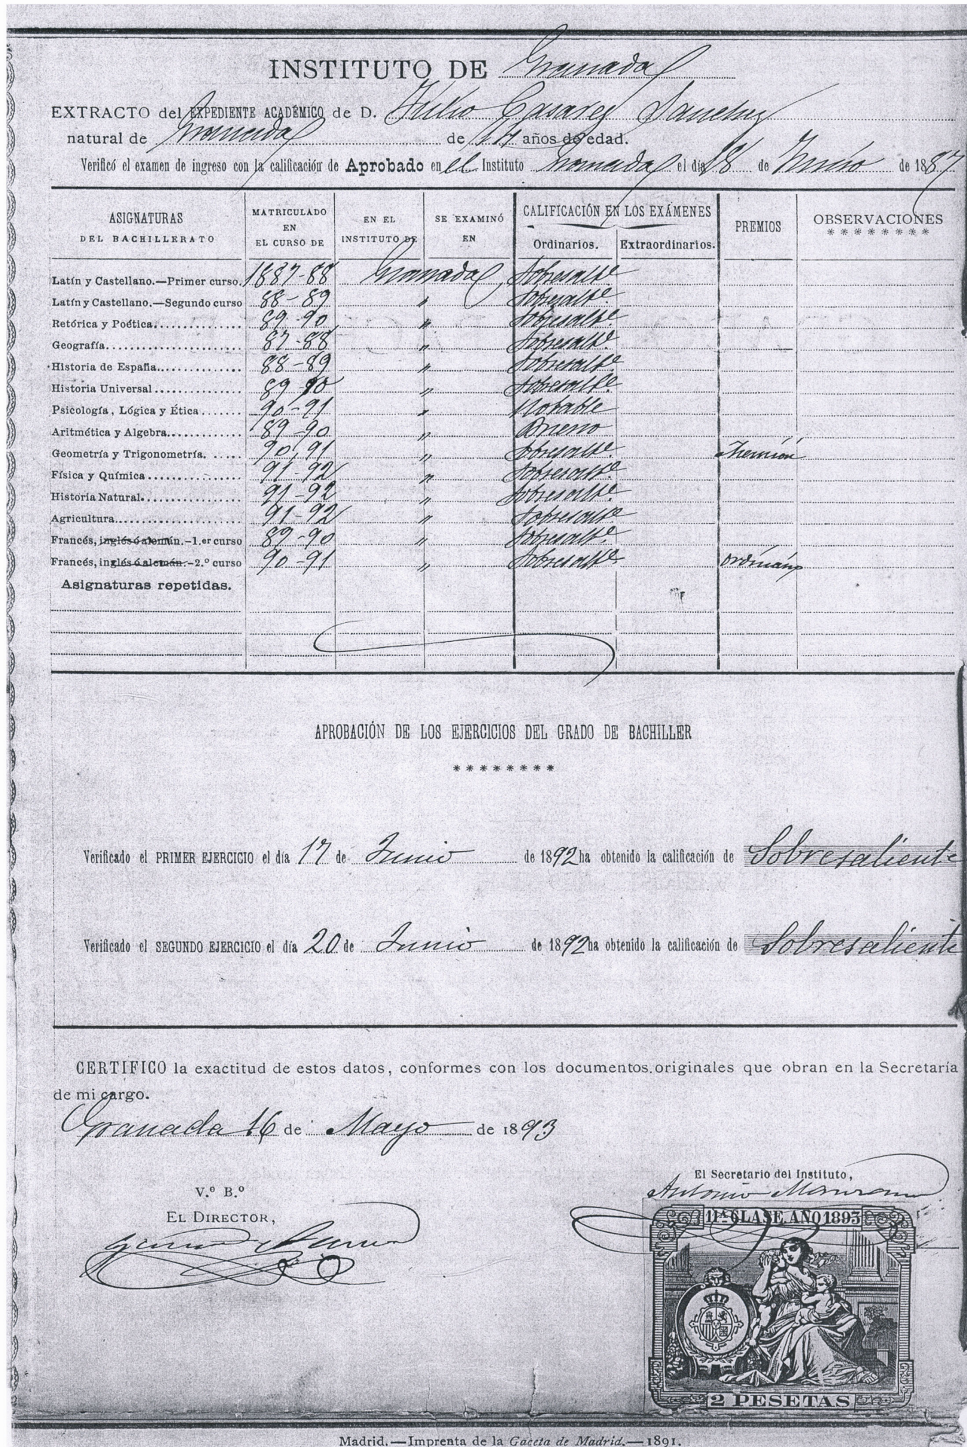 INSTITUTO DE Granada
EXTRACTO del EXPEDIENTE ACADÉMICO de D. Julio Casares Sanchez
natural de Granada de 14 años de edad.
Verificó el examen de ingreso con la calificación de Aprobado en el Instituto Granada el día 18 de Junio de 1887.
ASIGNATURAS DEL BACHILLERATO MATRICULADO EN EL CURSO DE EN EL INSTITUTO DE SE EXAMINÓ EN CALIFICACIÓN EN LOS EXÁMENES Ordinarios. Extraordinarios. PREMIOS OBSERVACIONES
********
Latín y Castellano.—Primer curso. 1887-88 Granada Sobresalte
Latín y Castellano.—Segundo curso 88-89 " Sobresalte
Retórica y Poética.............. 89-90 " Sobresalte
Geografía.............. 87-88 " Sobresalte
Historia de España.............. 88-89 " Sobresalte
Historia Universal.............. 89-90 " Sobresalte
Psicología, Lógica y Ética....... 90-91 " Notable
Aritmética y Algebra............ 89-90 " Bueno
Geometría y Trigonometría...... 90,91 " Sobresalte Premio
Física y Química.............. 91-92 " Sobresalte
Historia Natural.............. 91-92 " Sobresalte
Agricultura.............. 91-92 " Sobresalte
Francés, inglés ó alemán.-1.er curso 89-90 " Sobresalte
Francés, inglés ó alemán.-2.º curso 90-91 " Sobresalte ordinario
Asignaturas repetidas.
APROBACIÓN DE LOS EJERCICIOS DEL GRADO DE BACHILLER
********
Verificado el PRIMER EJERCICIO el día 17 de Junio de 1892 ha obtenido la calificación de Sobresaliente
Verificado el SEGUNDO EJERCICIO el día 20 de Junio de 1892 ha obtenido la calificación de Sobresaliente
CERTIFICO la exactitud de estos datos, conformes con los documentos originales que obran en la Secretaría
de mi cargo.
Granada 16 de Mayo de 1893
El Secretario del Instituto,
Antonio
V.º B.º
EL DIRECTOR,
11ª CLASE AÑO 1893
2 PESETAS
Madrid.—Imprenta de la Gaceta de Madrid.—1891.